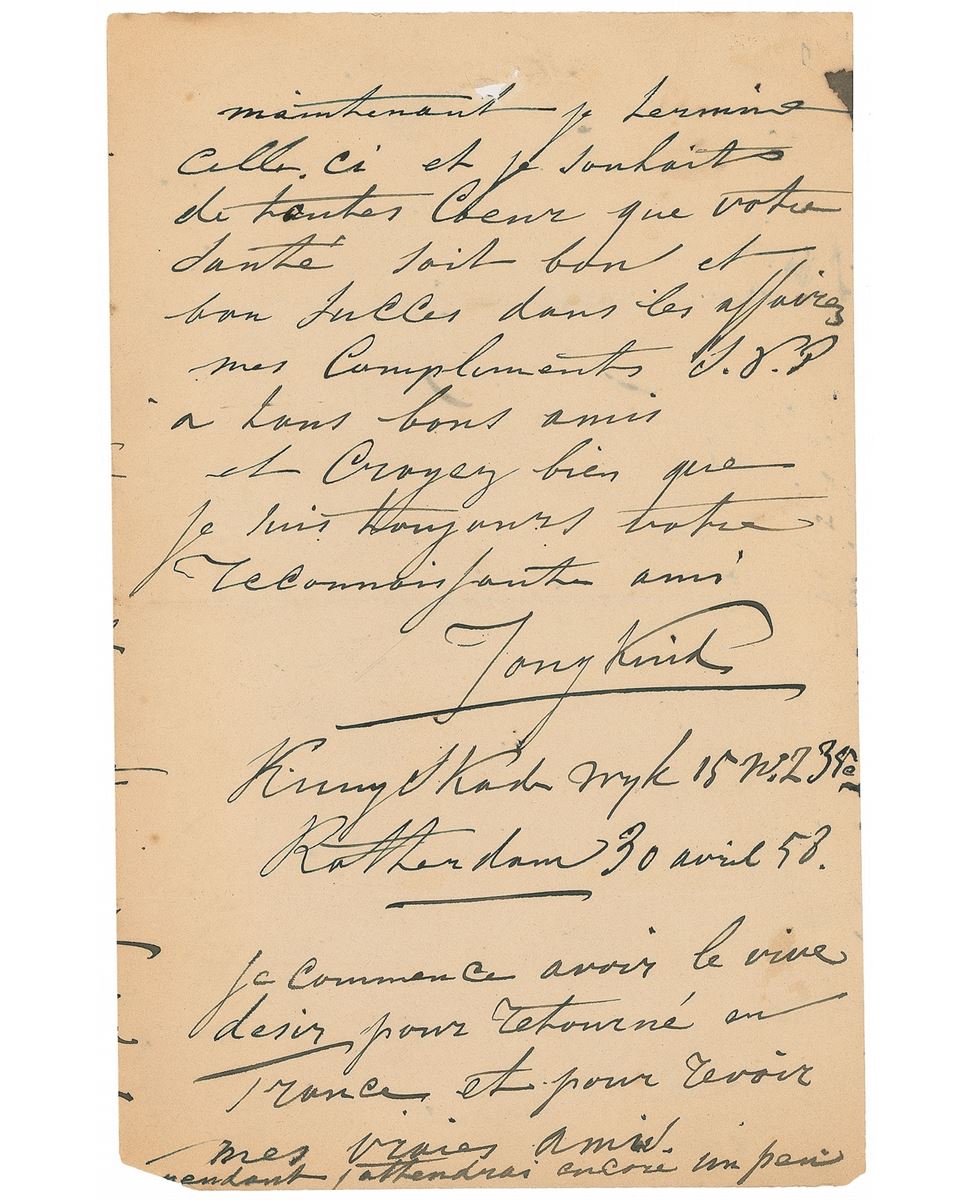 maintenant je termine
celle. ci et je souhaits
de toutes Coeur que votre
santé soit bon et
bon succes dans les affaires
mes Compliments S.V.P
a tous bons amis
et Croyez bien que
je suis toujours votre
reconnaissante ami
Jongkind
wyk 15 No. 2
Rotterdam 30 avril 58.
je commence avoir le vive
desir pour retourné en
France et pour revoir
mes vraies amis.
pendant j'attendrai encore un peu